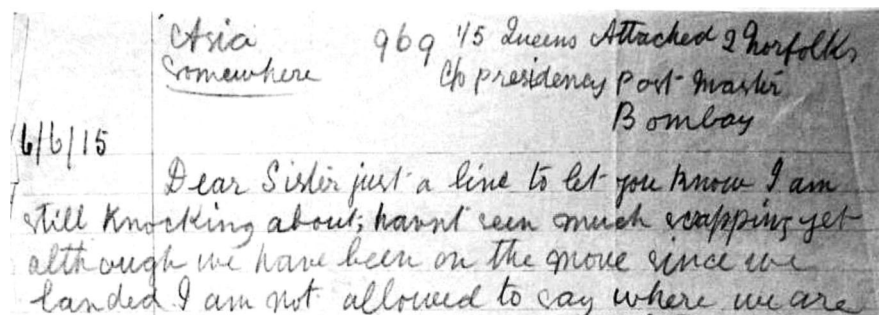 Asia 969 1/5 Queens Attached 2 Norfolks
Somewhere c/o presidency Post Master
Bombay
6/6/15
Dear Sister just a line to let you know I am
still knocking about; havnt seen much scapping yet
although we have been on the move since we
landed I am not allowed to say where we are